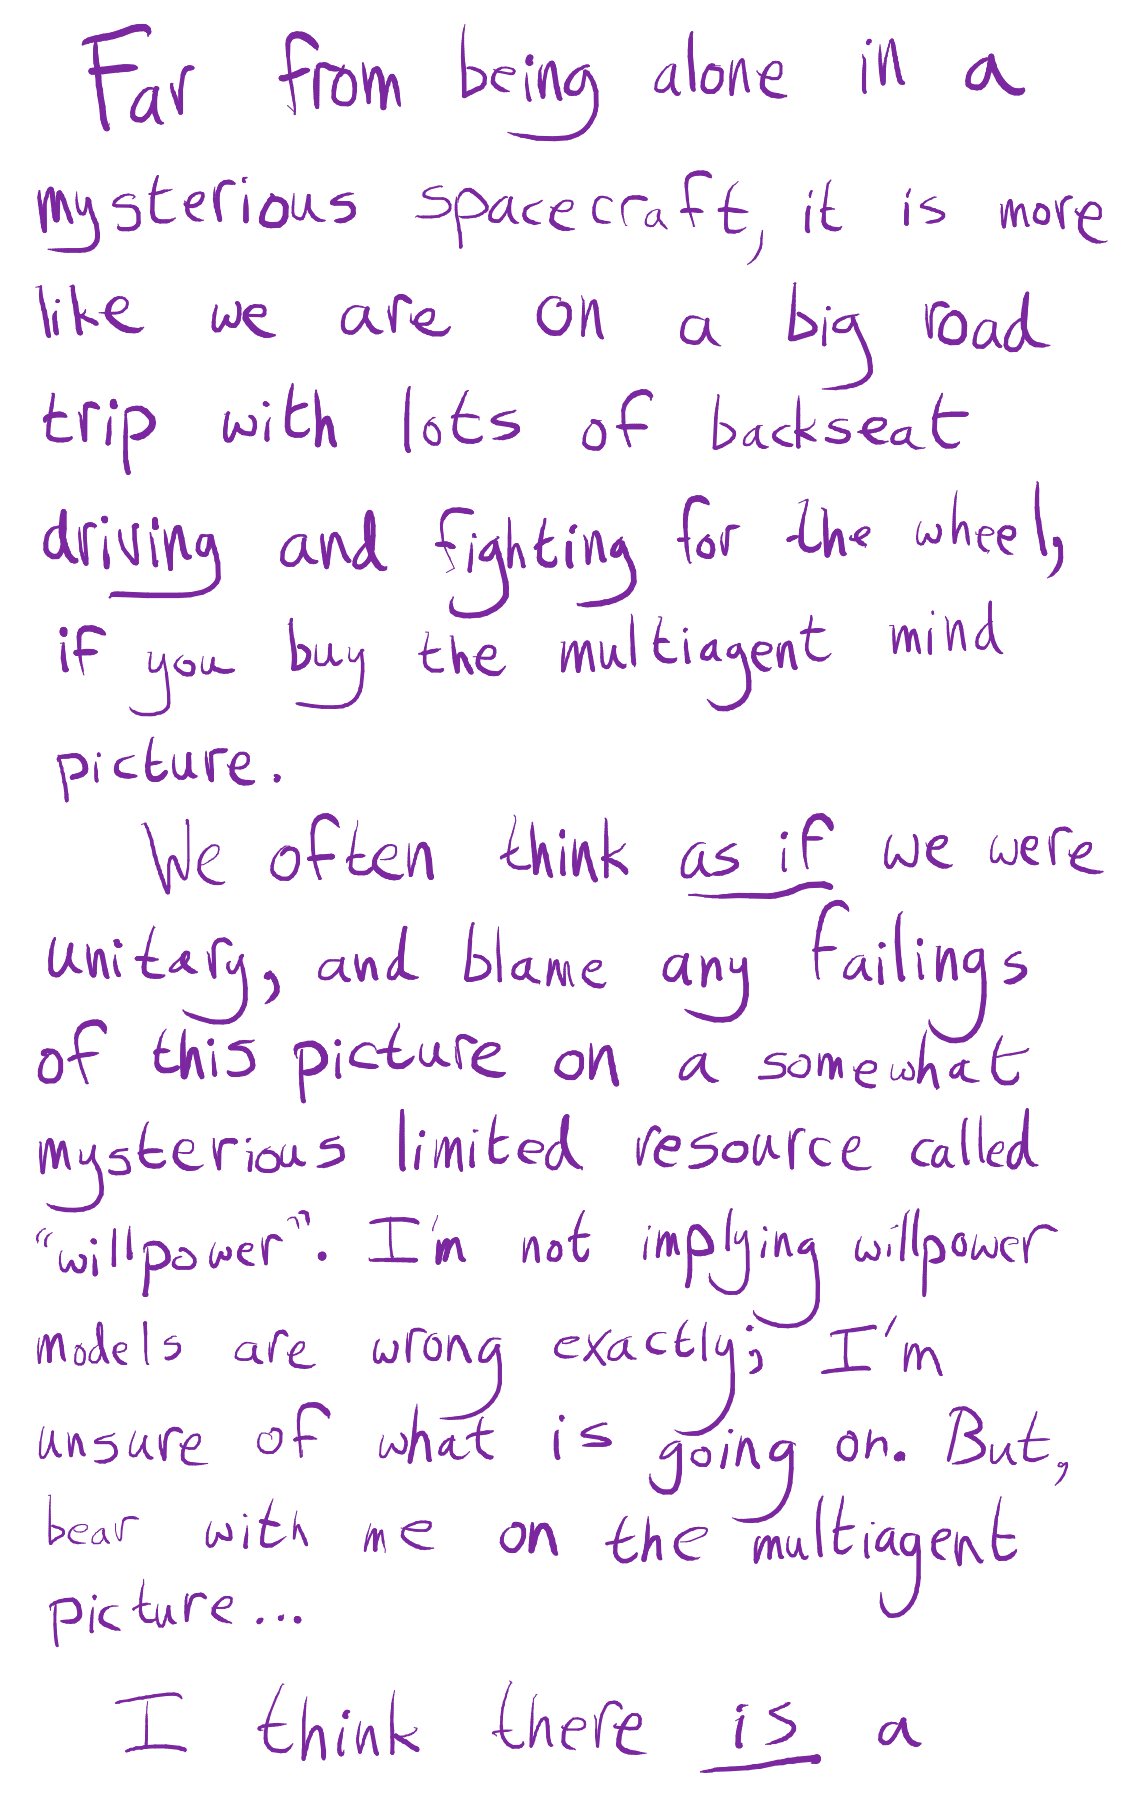 Far from being alone in a
mysterious spacecraft, it is more
like we are on a big road
trip with lots of backseat
driving and fighting for the wheel,
if you buy the multiagent mind
picture.
We often think as if we were
unitary, and blame any failings
of this picture on a somewhat
mysterious limited resource called
"willpower". I'm not implying willpower
models are wrong exactly; I'm
unsure of what is going on. But,
bear with me on the multiagent
picture...
I think there is a